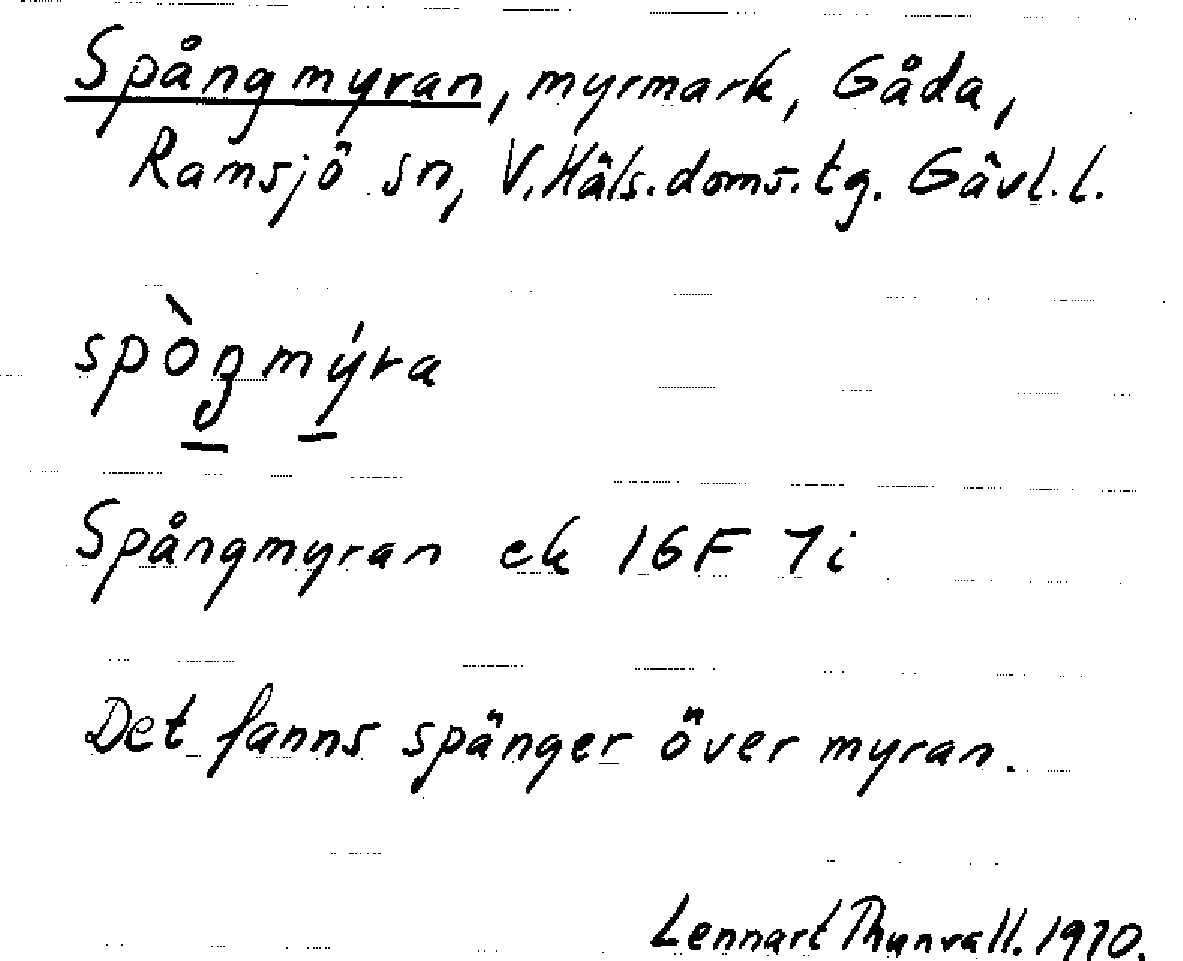 Spångmyran, myrmark, Gåda,
Ramsjö sn, V. Häls. doms. tg. Gävl. l.
spòŋmýra
Spångmyran ek 16F 7i
Det fanns spänger över myran.
Lennart Thunvall. 1970.